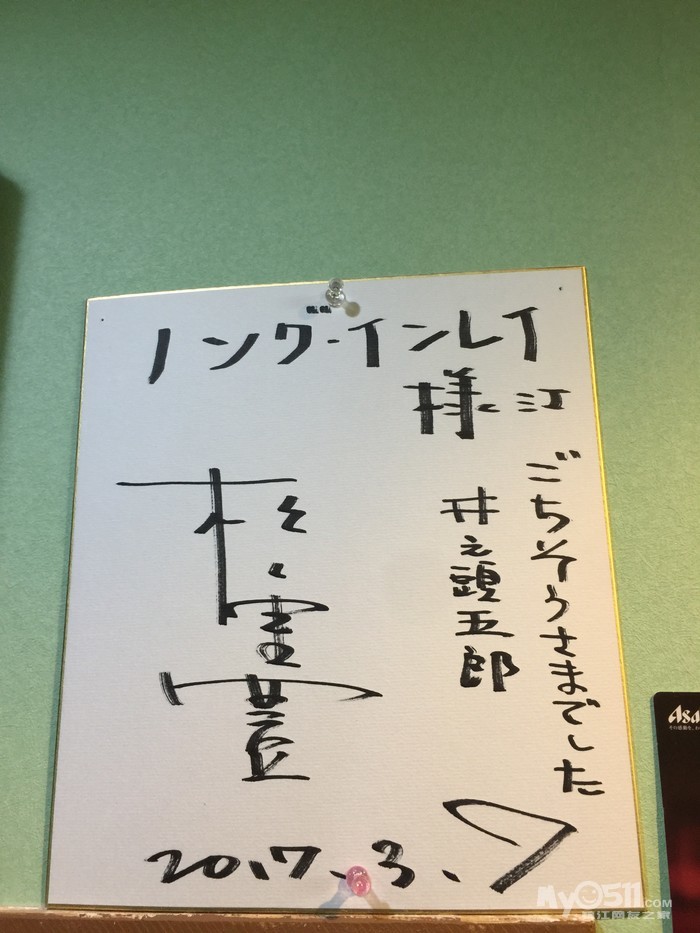 ノング・インレイ
様江
ごちそうさまでした
井之頭五郎
松重豊
2017.3.7
Asa
My0511.COM
江网友之家